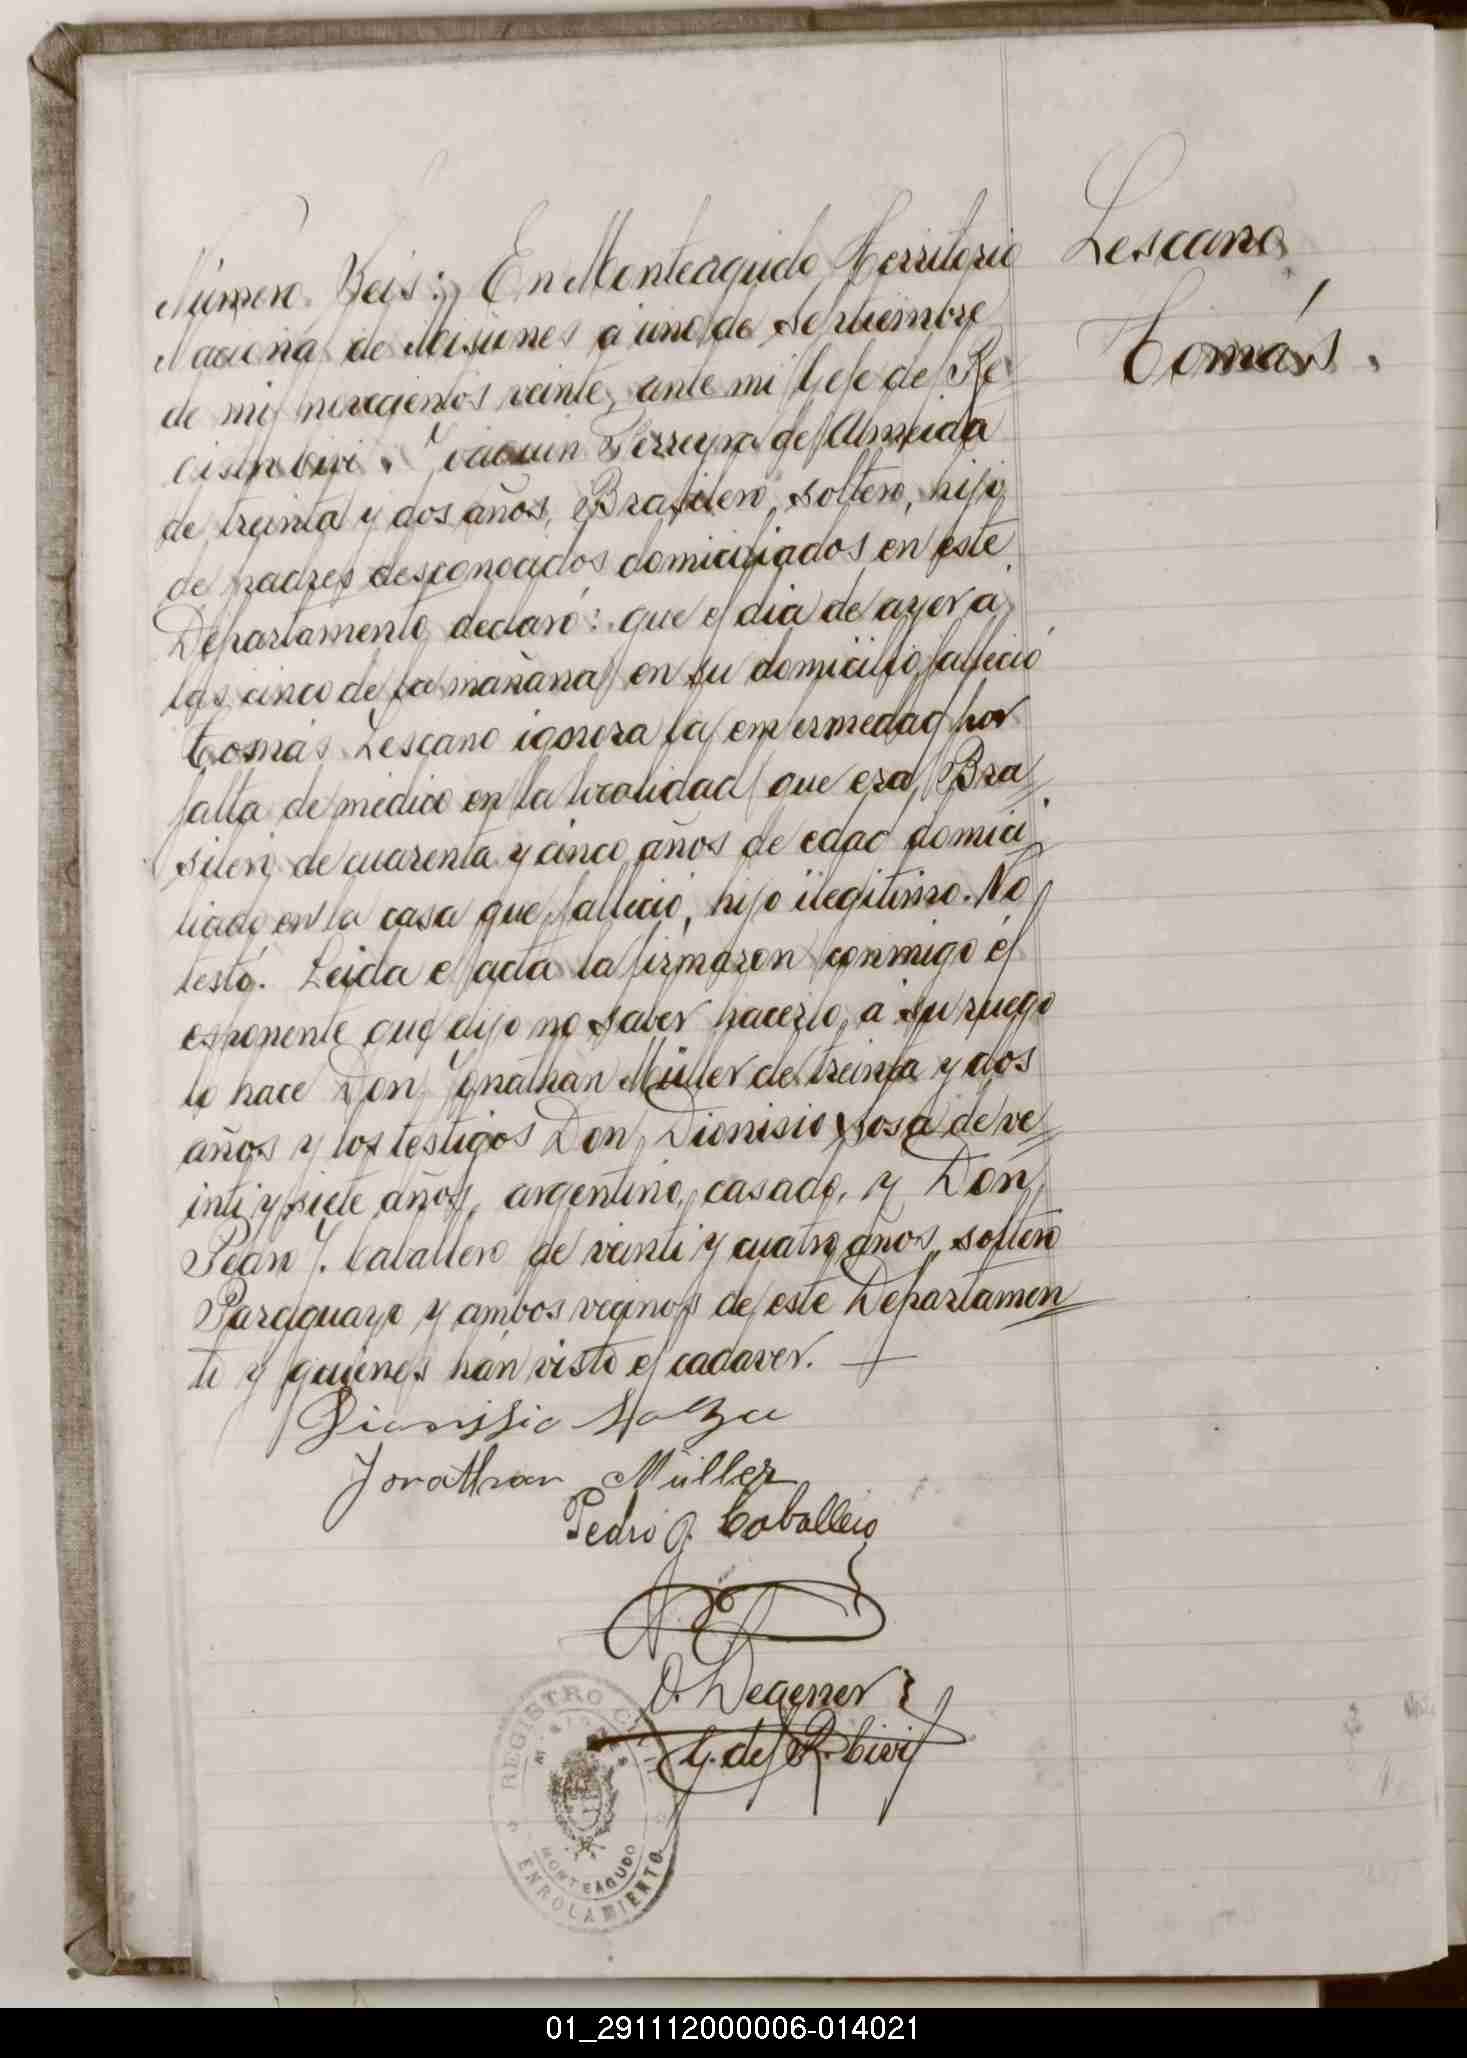 Lescano
Tomás.
Número Seis: En Monteagudo Territorio
Nacional de Misiones á uno de Septiembre
de mil novecientos veinte, ante mi Gefe de Re-
gistro Civil. Joaquin Ferreyra de Almeida
de treinta y dos años, Brasilero, soltero, hijo
de padres desconocidos domiciliados en este
Departamento declaró: que el dia de ayer á
las cinco de la mañana en su domicilio falleció
Tomás Lescano ignora la enfermedad por
falta de médico en la localidad que era Bra=
silero de cuarenta y cinco años de edad domici
liado en la casa que falleció, hijo ilegitimo. No
testó. Leida el acta la firmaron conmigo él
esponente que dijo no saber hacerlo, á su ruego
lo hace Don Jonathan Müller de treinta y dos
años y los testigos Don Dionisio Sosa de ve=
inti y siete años, argentino, casado, y Don
Pedro J. Caballero de veinti y cuatro años, soltero
Paraguayo y ambos vecinos de este Departamen=
to y quiénes hán visto el cadaver.
Dionissio
Jonathan Müller
Pedro J. Caballero
O. Degener
G. del R. Civil
REGISTRO CIVIL
MISIONES
MONTEAGUDO
ENROLAMIENTO
01_291112000006-014021